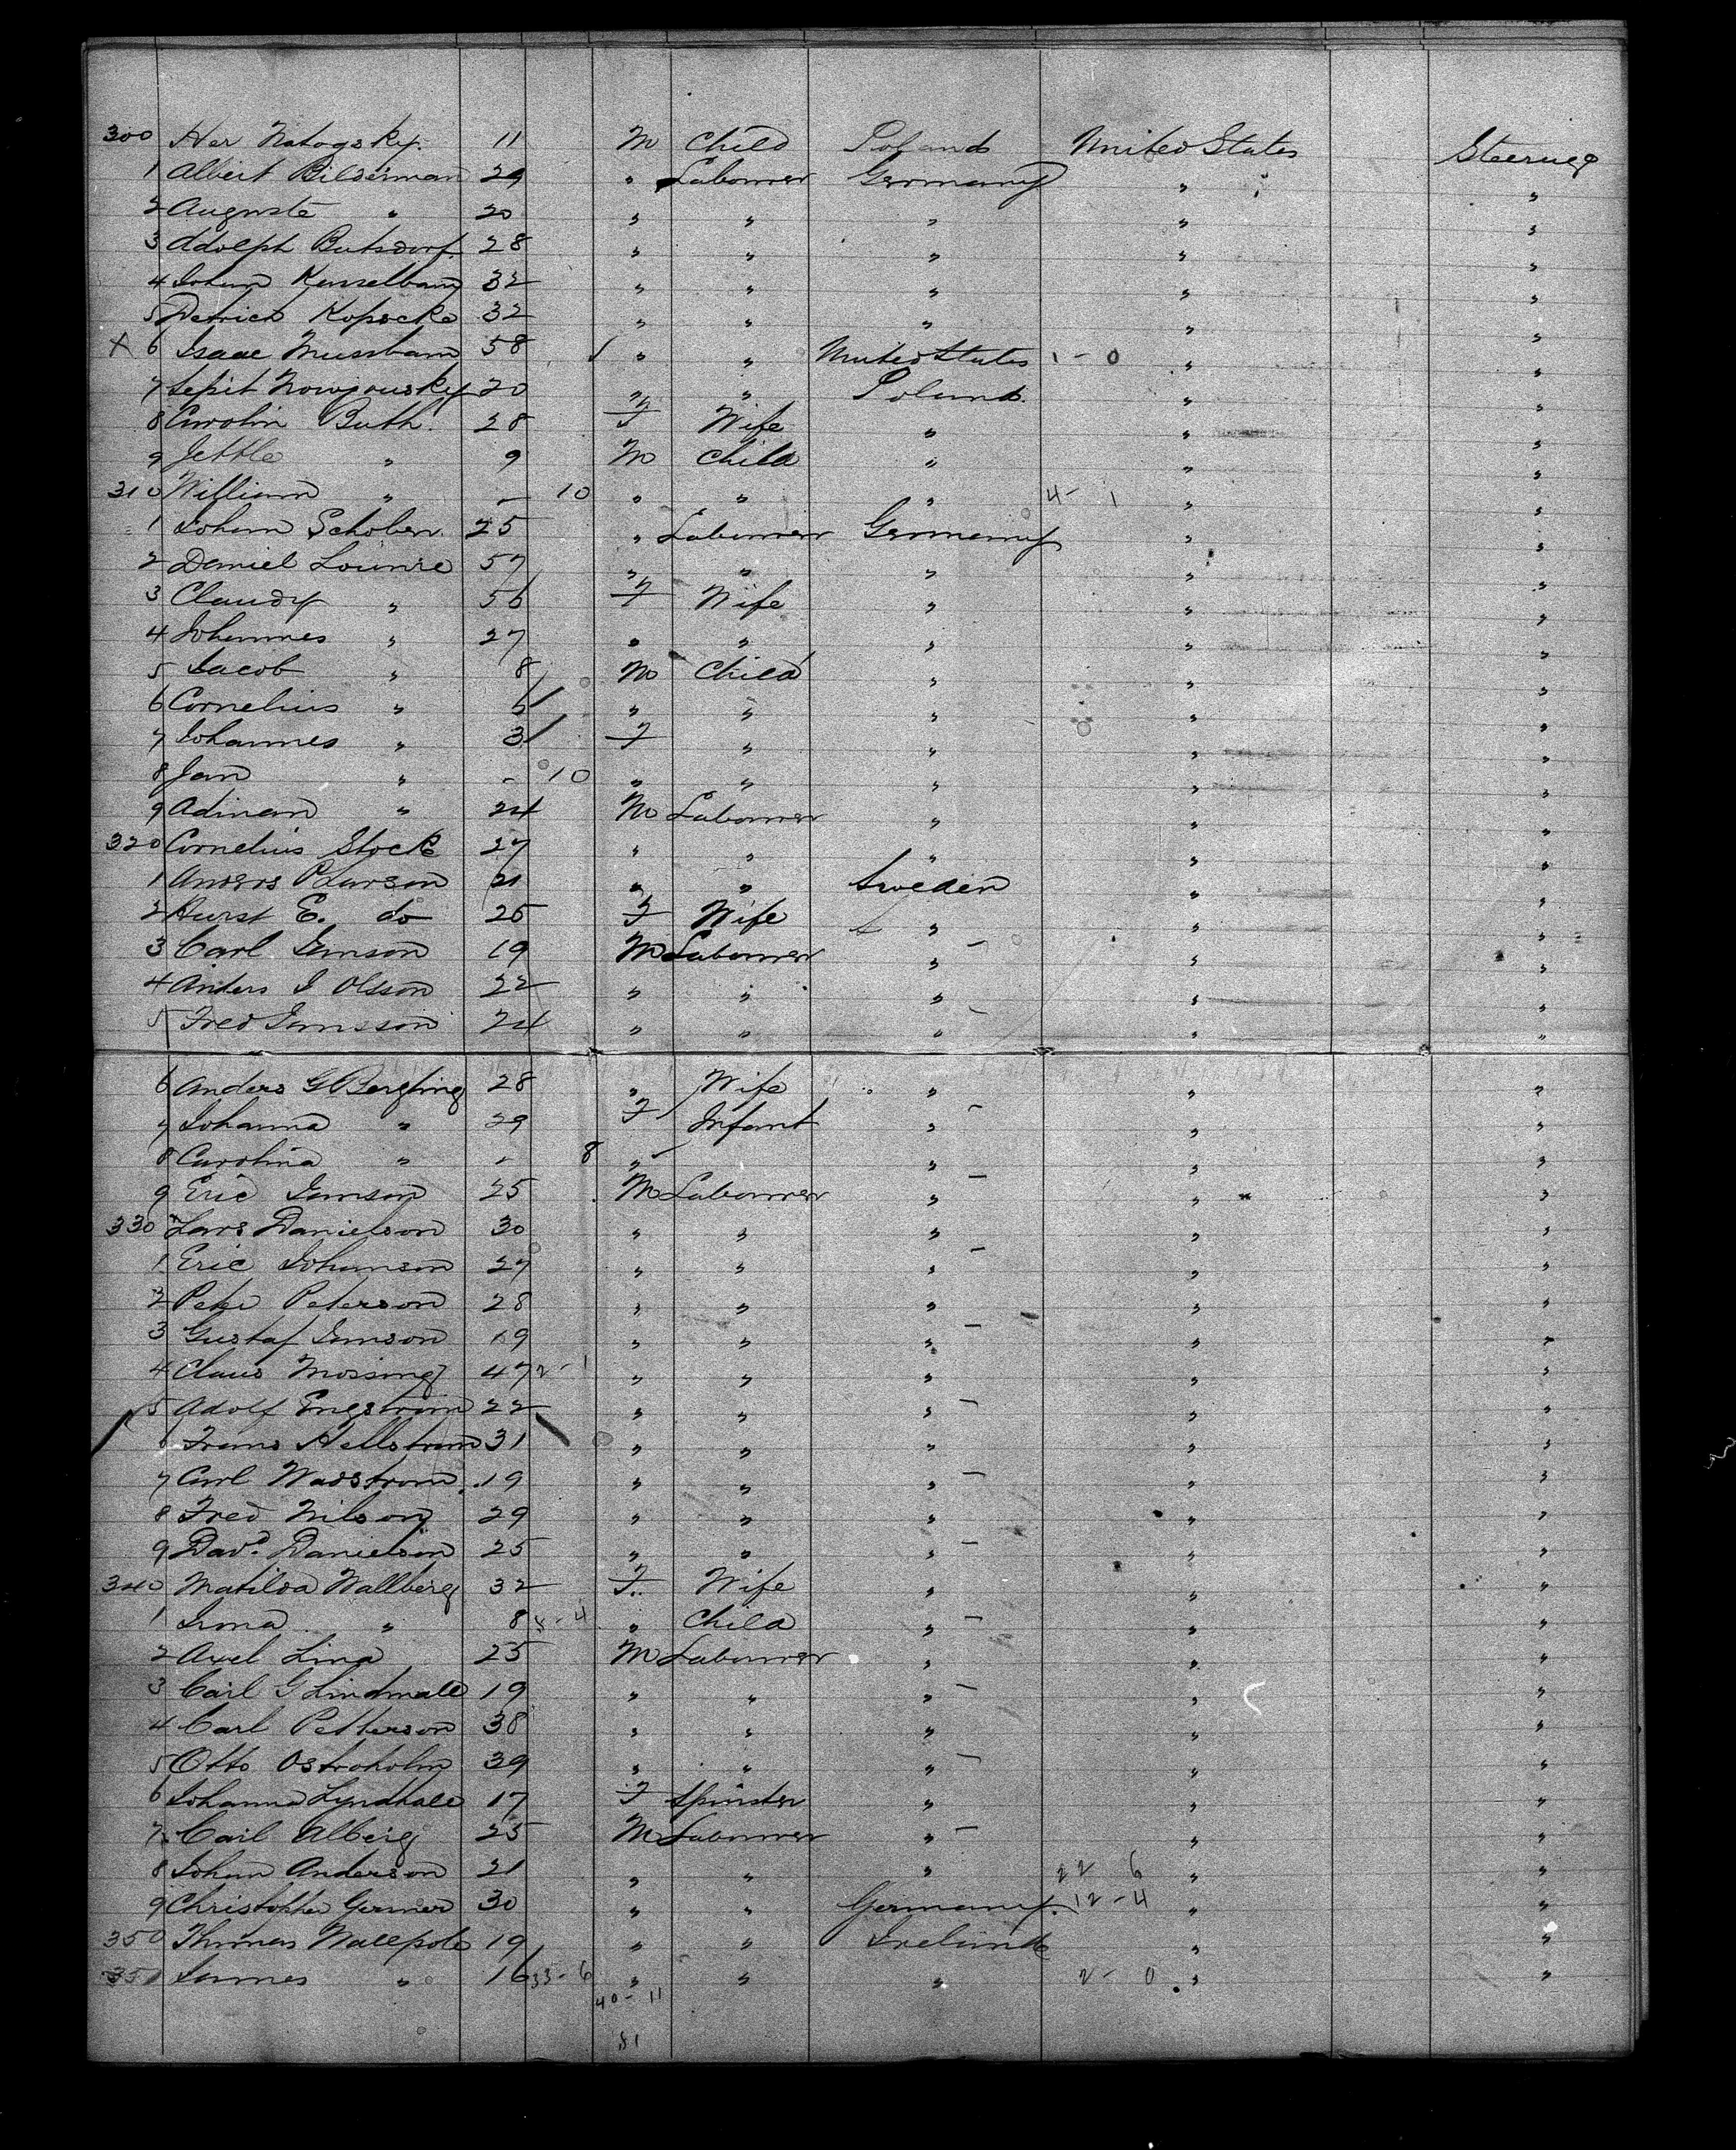 300 Her Natogsky. 11 M Child Poland United States Steerage
1 Albert Bilderman 29 " Labourer Germany " "
2 Auguste " 20 " " " " "
3 Adolph Butsdorf. 28 " " " " "
4 Johann Kesselbaum 32 " " " " "
5 Detrich Kopocke 32 " " " " "
X 6 Isaac Mussbaum 58 √ " " United States 1 - 0 " "
7 Nowgousky 20 " " Poland. " "
8 Carolin Buth. 28 F Wife " " "
9 Jettle " 9 M Child " " "
310 William " - 10 " " " 4 - 1 " "
1 Johann Schober. 25 " Labourer Germany " "
2 Daniel Lounse 57 " " " " "
3 Claudy " 56 F Wife " " "
4 Johannes " 27 " " " " "
5 Jacob " 8 M Child " " "
6 Cornelius " 5 " " " " "
7 Johannes " 3 F " " " "
8 Jan " - 10 " " " " "
9 Adinan " 24 M Labourer " " "
320 Cornelius Stock 27 " " " " "
1 Anders P Larson 21 " " Sweden " "
2 E. do 25 F Wife " " "
3 Carl Janson 19 M Labourer " " "
4 Anders J Olsson 22 " " " " "
5 Fred Jansson 24 " " " " "
6 Anders G Bergling 28 " Wife " " "
7 Johanna " 29 F Infant " " "
8 Carolina " - 8 " " " "
9 Eric Janson 25 M Labourer " " "
330 Lars Danielson 30 " " " " "
1 Eric Johanson 27 " " " " "
2 Peter Peterson 28 " " " " "
3 Gustaf Janson 19 " " " " "
4 Claus Mossing 47 2 - 1 " " " " "
5 Adolf Engstrom 22 " " " " "
6 Frans Hellstrom 31 " " " " "
7 Carl Wadstrom. 19 " " " " "
8 Fred Nilson 29 " " " " "
9 Davd. Danielson 25 " " " " "
340 Matilda Wallberg 32 F. Wife " " "
1 Irma " 8 5 - 4 " Child " " "
2 Axel Lina 25 M Labourer " " "
3 Carl G Lindmall 19 " " " " "
4 Carl Petterson 38 " " " " "
5 Otto Ostroholm 39 " " " " "
6 Johanna Lyndhall 17 F Spinster " " "
7 Carl Alberg 25 M Labourer " " "
8 Johan Anderson 21 " " " 22 6 " "
9 Christophe Germer 30 " " Germany. 12 - 4 " "
350 Thomas Wallpole 19 " " Ireland " "
351 James " 16 33 - 6 " " " 2 - 0 " "
40 - 11
51